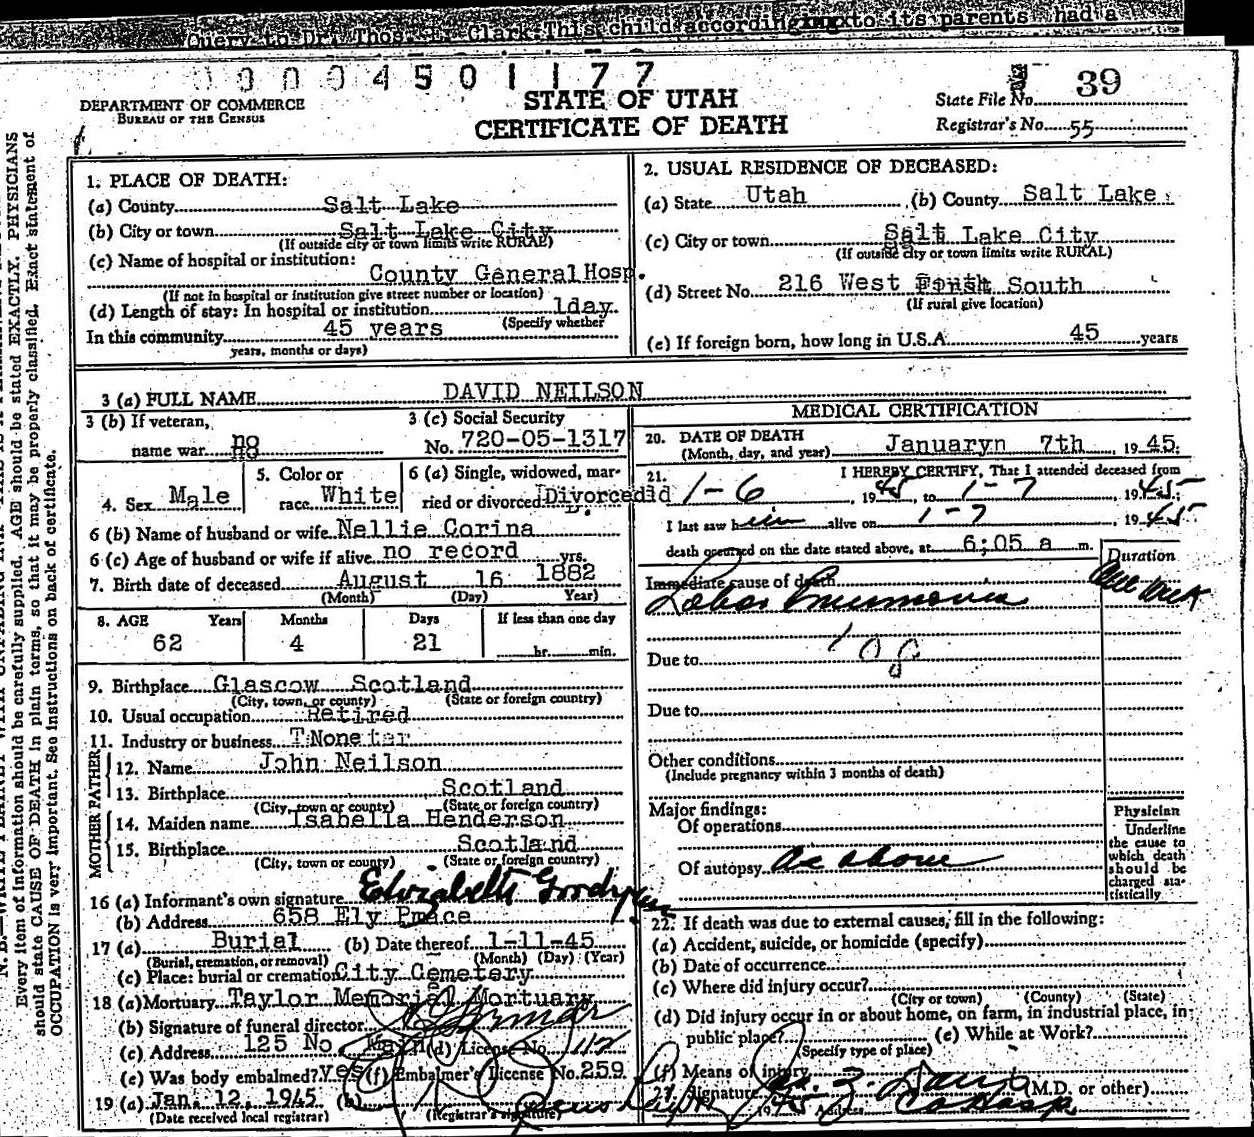 Query to Dr. Thos. Clark:This child according to its parents had a
0 0 0 0 4 5 0 1 1 7 7
DEPARTMENT OF COMMERCE
BUREAU OF THE CENSUS
STATE OF UTAH
CERTIFICATE OF DEATH
State File No. 39
Registrar's No. 55
1. PLACE OF DEATH:
(a) County Salt Lake
(b) City or town Salt Lake City
(If outside city or town limits write RURAL)
(c) Name of hospital or institution:
County General Hosp.
(If not in hospital or institution give street number or location)
(d) Length of stay: In hospital or institution 1day
(Specify whether
In this community 45 years
years, months or days)
2. USUAL RESIDENCE OF DECEASED:
(a) State Utah (b) County Salt Lake
(c) City or town Salt Lake City
(If outside city or town limits write RURAL)
(d) Street No. 216 West South
(If rural give location)
(e) If foreign born, how long in U.S.A. 45 years
3 (a) FULL NAME DAVID NEILSON
3 (b) If veteran,
name war no
3 (c) Social Security
No. 720-05-1317
4. Sex Male
5. Color or
race White
6 (a) Single, widowed, mar-
ried or divorced Divorced
6 (b) Name of husband or wife Nellie Corina
6 (c) Age of husband or wife if alive no record yrs.
7. Birth date of deceased August 16 1882
(Month) (Day) Year)
8. AGE Years Months Days If less than one day
62 4 21 hr. min.
9. Birthplace Glascow Scotland
(City, town, or county) (State or foreign country)
10. Usual occupation Retired
11. Industry or business None
MOTHER FATHER
12. Name John Neilson
13. Birthplace Scotland
(City, town or county) (State or foreign country)
14. Maiden name Isabella Henderson
15. Birthplace Scotland
(City, town or county) (State or foreign country)
16 (a) Informant's own signature Elizabeth
(b) Address 658 Ely Pmace
17 (a) Burial (b) Date thereof 1-11-45
(Burial, cremation, or removal) (Month) (Day) (Year)
(c) Place: burial or cremation City Cemetery
18 (a) Mortuary Taylor Memorial Mortuary
(b) Signature of funeral director
(c) Address 125 No Main (d) License No. 112
(e) Was body embalmed? yes (f) Embalmer's License No. 259
19 (a) Jan. 12, 1945 (b)
(Date received local registrar) (Registrar's signature)
MEDICAL CERTIFICATION
20. DATE OF DEATH
(Month, day, and year) Januaryn 7th, 1945
21. I HEREBY CERTIFY, That I attended deceased from
1-6, 1945, to 1-7, 1945
I last saw him alive on 1-7, 1945
death occurred on the date stated above, at 6;05 a m.
Duration
Immediate cause of death
Lobar Pneumonia one week
108
Due to
Due to
Other conditions
(Include pregnancy within 3 months of death)
Major findings:
Of operations
Of autopsy as above
Physician
Underline
the cause to
which death
should be
charged sta-
tistically
22. If death was due to external causes, fill in the following:
(a) Accident, suicide, or homicide (specify)
(b) Date of occurrence
(c) Where did injury occur?
(City or town) (County) (State)
(d) Did injury occur in or about home, on farm, in industrial place, in
public place? (e) While at Work?
(Specify type of place)
(f) Means of injury
Signature (M.D. or other)
1945 Address Co Hosp.
Every item of information should be carefully supplied. AGE should be stated EXACTLY. PHYSICIANS
should state CAUSE OF DEATH in plain terms, so that it may be properly classified. Exact statement of
OCCUPATION is very important. See instructions on back of certificate.